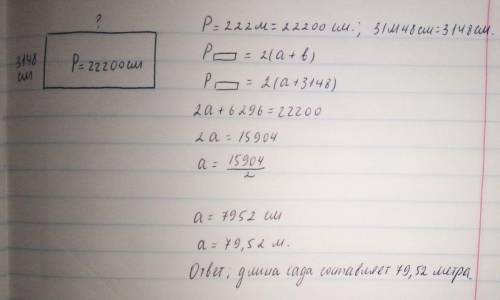 ?
3148 см
P=22200 см
P=222м=22200 см.; 31м48см=3148см.
P▭ = 2(a+b)
P▭ = 2(a+3148)
2a+6296=22200
2a=15904
a=15904/2
a=7952 см
a=79,52 м.
Ответ: длина сада составляет 79,52 метра.